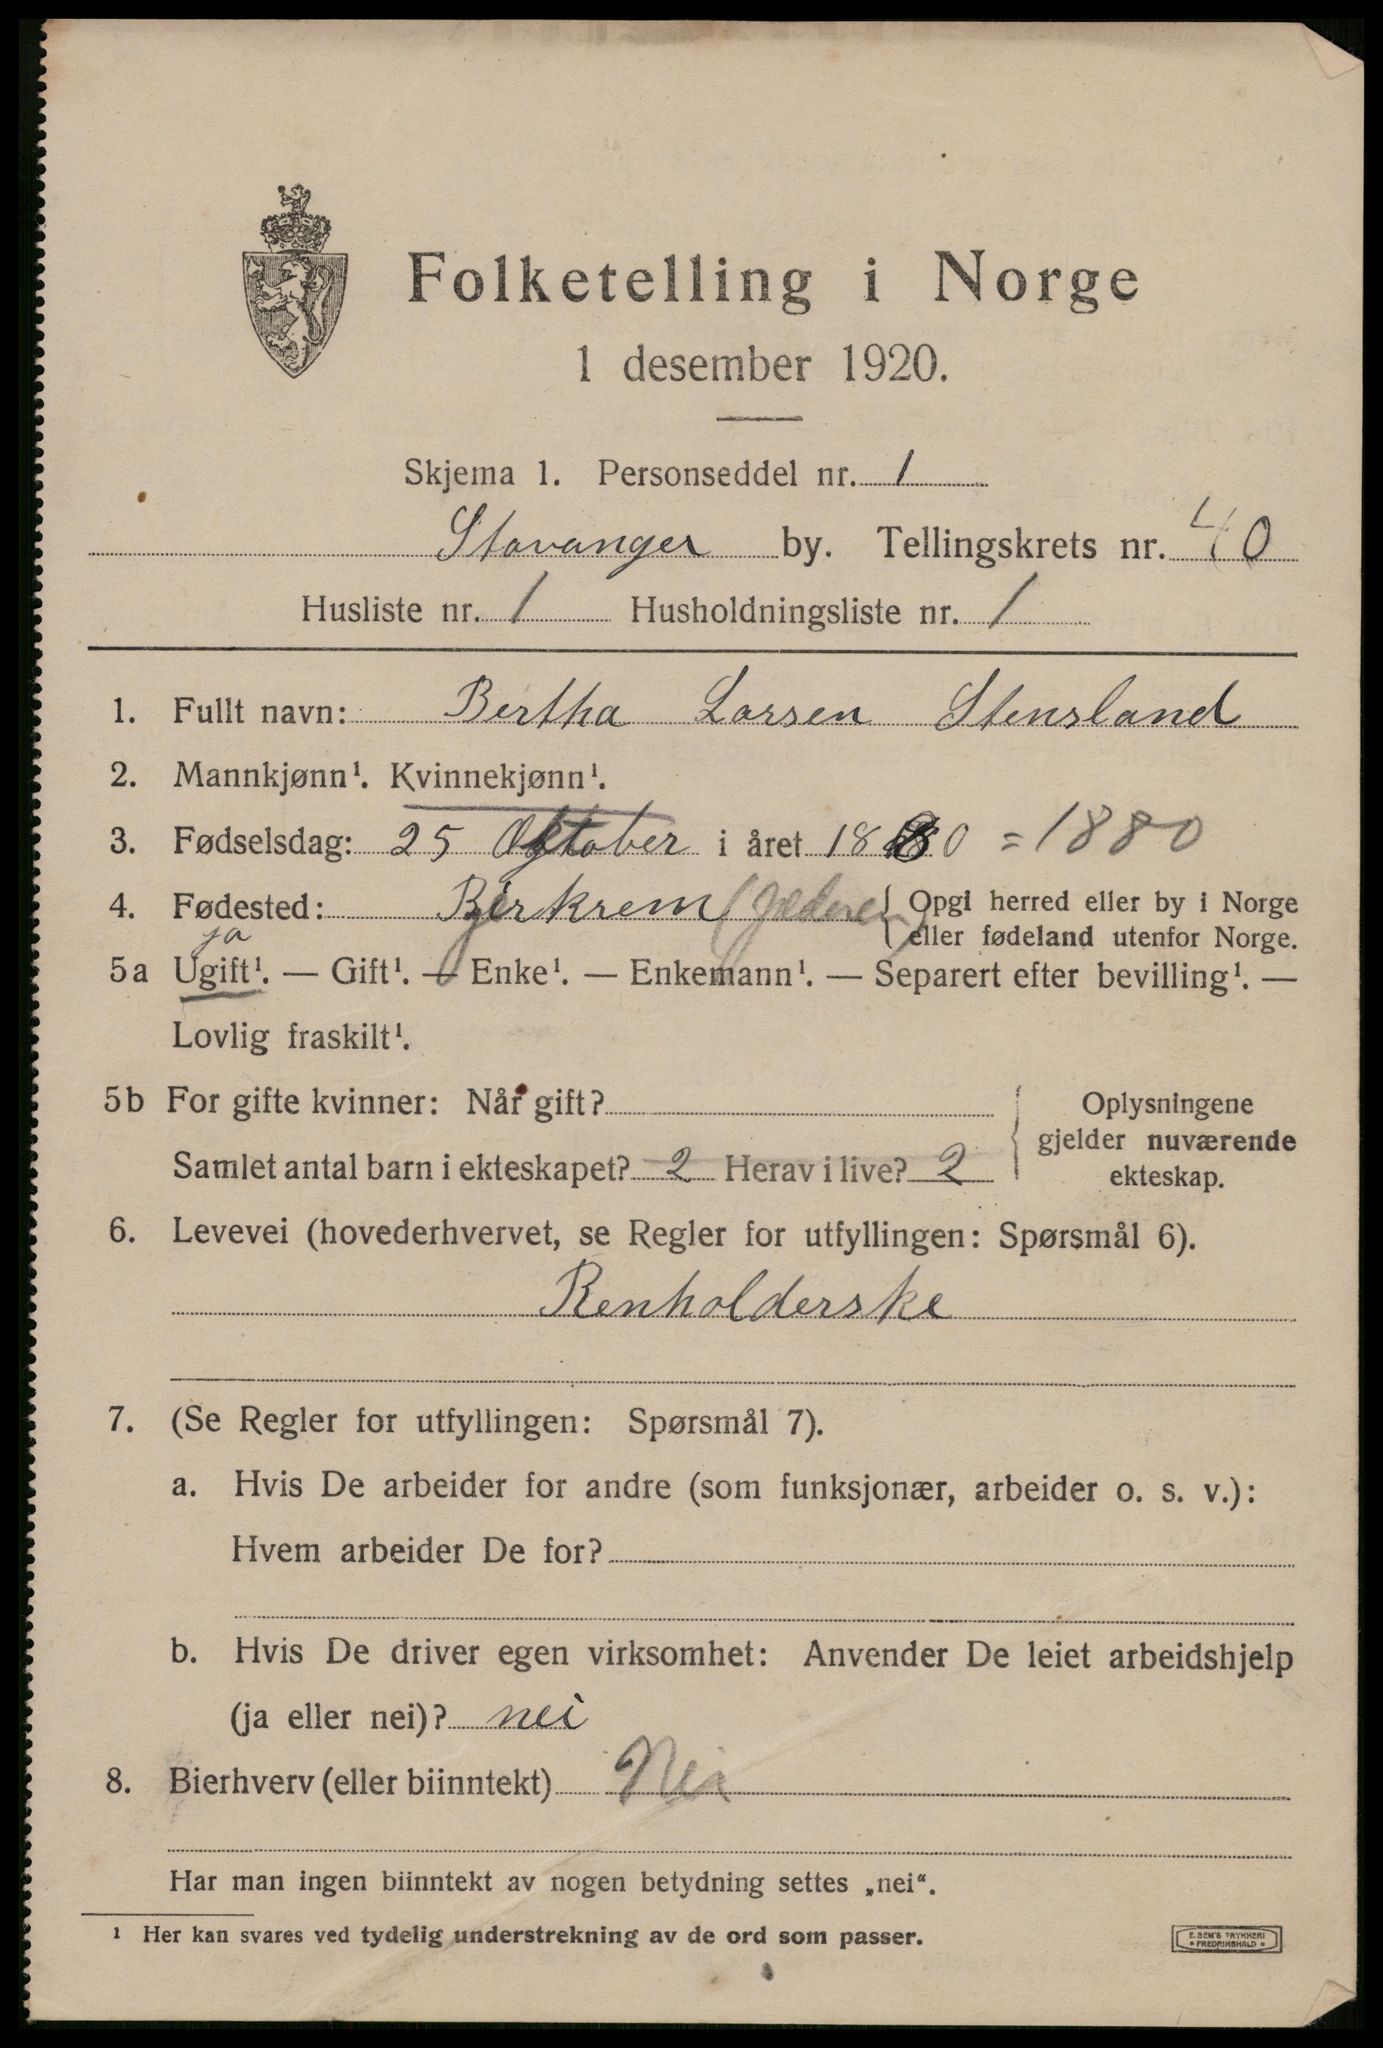 Folketelling i Norge
1 desember 1920.
Skjema 1. Personseddel nr. 1
Stavanger by. Tellingskrets nr. 40
Husliste nr. 1 Husholdningsliste nr. 1
1. Fullt navn: Bertha Larsen Stensland
2. Mannkjønn¹. Kvinnekjønn¹.
3. Fødselsdag: 25 Oktober i året 1880 = 1880
4. Fødested: Bjerkrem (Jæderen) { Opgi herred eller by i Norge
eller fødeland utenfor Norge.
ja
5a Ugift¹. — Gift¹. — Enke¹. — Enkemann¹. — Separert efter bevilling¹. —
Lovlig fraskilt¹.
5b For gifte kvinner: Når gift?
Samlet antal barn i ekteskapet? 2 Herav i live? 2
Oplysningene
gjelder nuværende
ekteskap.
6. Levevei (hovederhvervet, se Regler for utfyllingen: Spørsmål 6).
Renholderske
7. (Se Regler for utfyllingen: Spørsmål 7).
a. Hvis De arbeider for andre (som funksjonær, arbeider o. s. v.):
Hvem arbeider De for?
b. Hvis De driver egen virksomhet: Anvender De leiet arbeidshjelp
(ja eller nei)? nei
8. Bierhverv (eller biinntekt) Nei
Har man ingen biinntekt av nogen betydning settes „nei“.
¹ Her kan svares ved tydelig understrekning av de ord som passer.
E. SEM'S TRYKKERI
• FREDRIKSHALD •